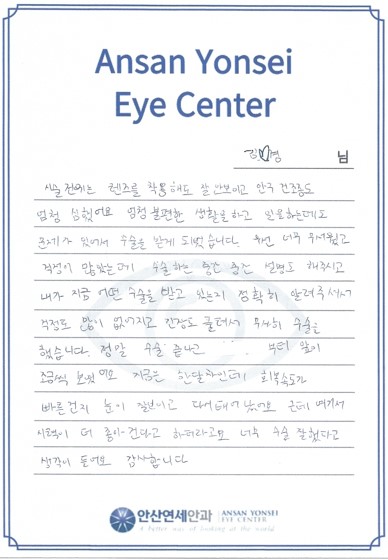 Ansan Yonsei
Eye Center
김 경 님
시술 전에는 렌즈를 착용해도 잘 안보이고 안구 건조증도
엄청 심했어요 엄청 불편한 생활을 하고 일을하는데도
문제가 있어서 수술을 받게 되었습니다. 우선 너무 무서웠고
걱정이 많았는데 수술하는 중간 중간 설명도 해주시고
내가 지금 어떤 수술을 받고 있는지 정확히 알려주셔서
걱정도 많이 없어지고 긴장도 풀려서 무사히 수술을
했습니다. 정말 수술 끝나고 부터 앞이
조금씩 보였어요 지금은 한달차인데 회복속도가
빠른건지 눈이 잘보이고 다시태어났어요 근데 여기서
시력이 더 좋아진다고 하더라고요 너무 수술 잘했다고
생각이 들어요 감사합니다
안산연세안과 ANSAN YONSEI
EYE CENTER
A better way of looking at the world